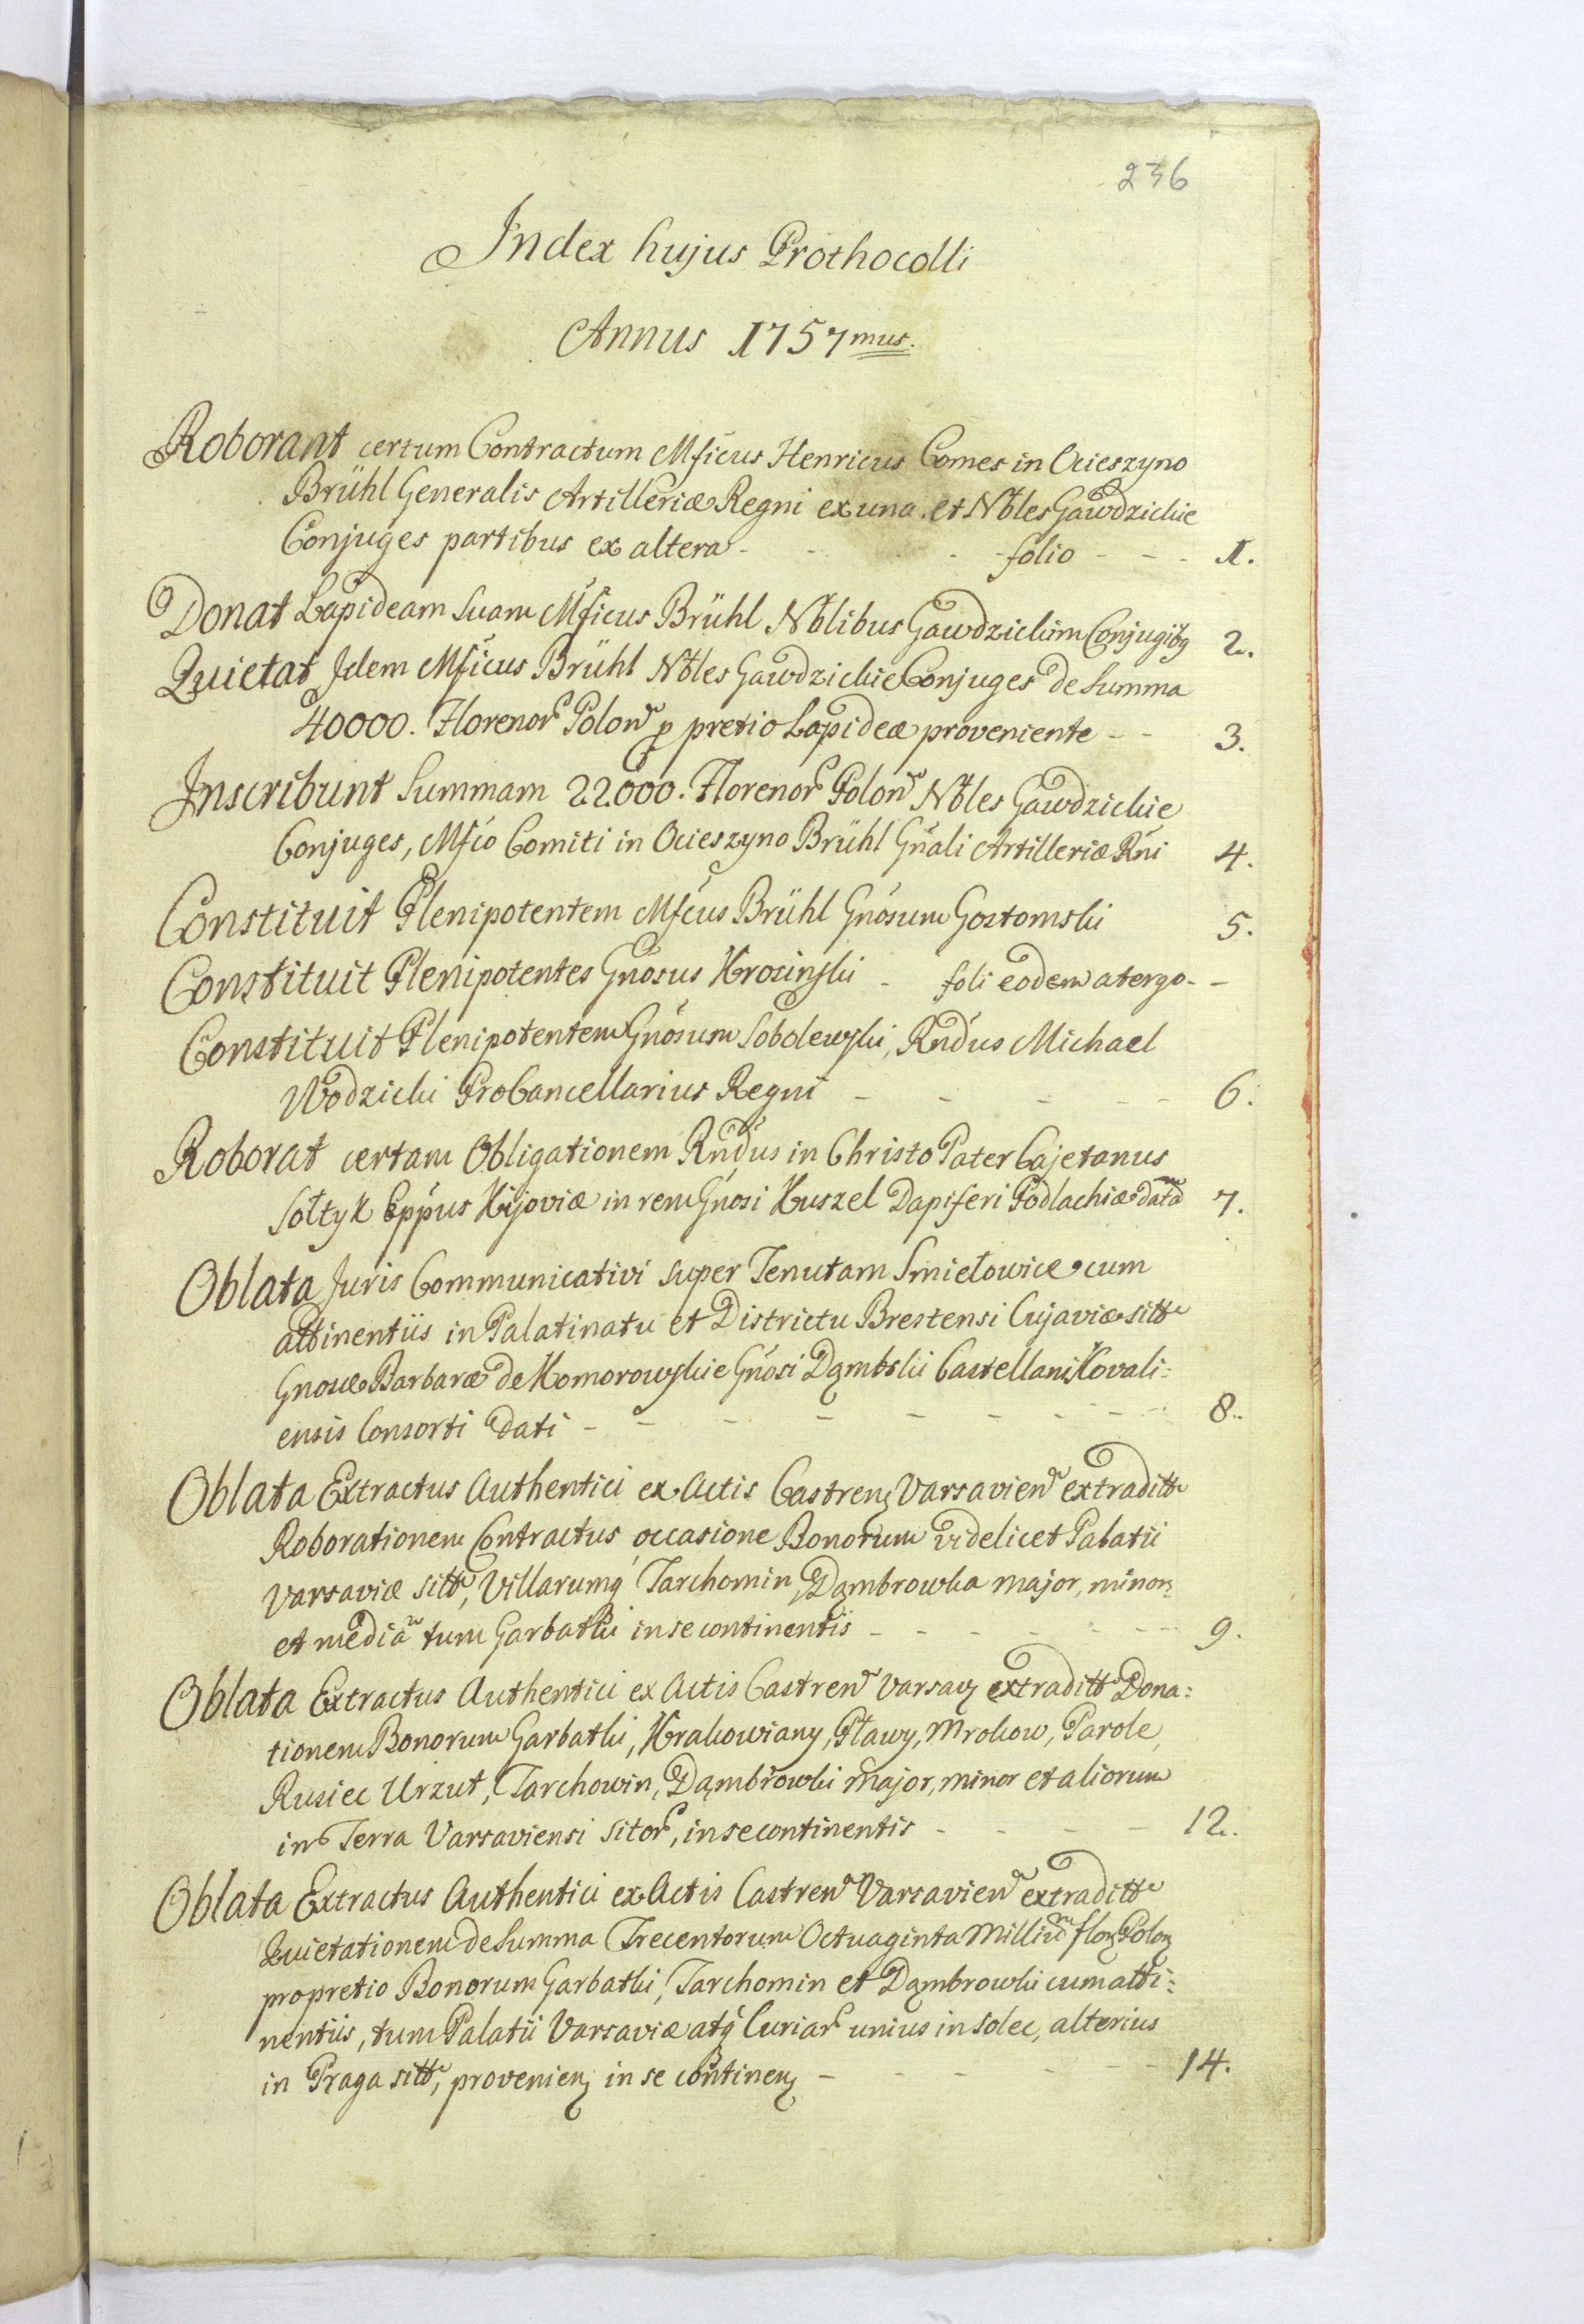 236
Index hujus Prothocolli
Annus 1757mus.
Roborant certum Contractum Mficus Henricus Comes in Ocieszyno
Brühl Generalis Artilleriæ Regni ex una et Nbles Gawdzickie
Conjuges partibus ex altera - - - - folio - - - 1.
Donat Lapideam Suam Mficus Brühl Nblibus Gawdzickim Conjugibq 2.
Quietat Idem Mficus Brühl Nbles Gawdzickie Conjuges de Summa
40000. Florenor Polon p pretio Lapideæ proveniente - - 3.
Inscribunt Summam 22000. Florenor Polon Nbles Gawdzickie
Conjuges, Mfco Comiti in Ocieszyno Brühl Gnali Artilleriæ Rni 4.
Constituit Plenipotentem Mfcus Brühl Gnosum Gostomski 5.
Constituit Plenipotentes Gnosus Krosinski - foli eodem atergo - -
Constituit Plenipotentem Gnosum Sobolewski, Rndus Michael
Wodzicki ProCancellarius Regni - - - - - 6.
Roborat certam Obligationem Rndus in Christo Pater Cajetanus
Sołtyk Eppus Kijoviæ in rem Gnosi Kuszel Dapiferi Podlachiæ data 7.
Oblata Juris Communicativi super Tenutam Smiełowice cum
attinentiis in Palatinatu et Districtu Brestensi Cujaviæ sitt
Gnosæ Barbaræ de Komorowskie Gnosi Dąmbski Castellani Kovali=
ensis Consorti dati - - - - - - - - 8.
Oblata Extractus Authentici ex Actis Castren Varsavien extraditt
Roborationem Contractus occasione Bonorum videlicet Palatii
Varsaviæ sitt, Villarumq Tarchomin, Dąmbrowka major, minor
et media tum Garbatki in se continentis - - - - - - 9.
Oblata Extractus Authentici ex Actis Castren Varsav extraditt Dona=
tionem Bonorum Garbatki, Krakowiany, Pławy, Mrokow, Parole,
Rusiec Urzut, Tarchowin, Dąmbrowki major, minor et aliorum
in Terra Varsaviensi sitor, in se continentis - - - - 12.
Oblata Extractus Authentici ex Actis Castren Varsavien extraditt
Quietationem de Summa Trecentorum Octuaginta Milliu flor Polon
pro pretio Bonorum Garbatki, Tarchomin et Dąmbrowki cum atti=
nentiis, tum Palatii Varsaviæ atq Curiar unius in Solec, alterius
in Praga sitt, provenien in se continen - - - - - 14.